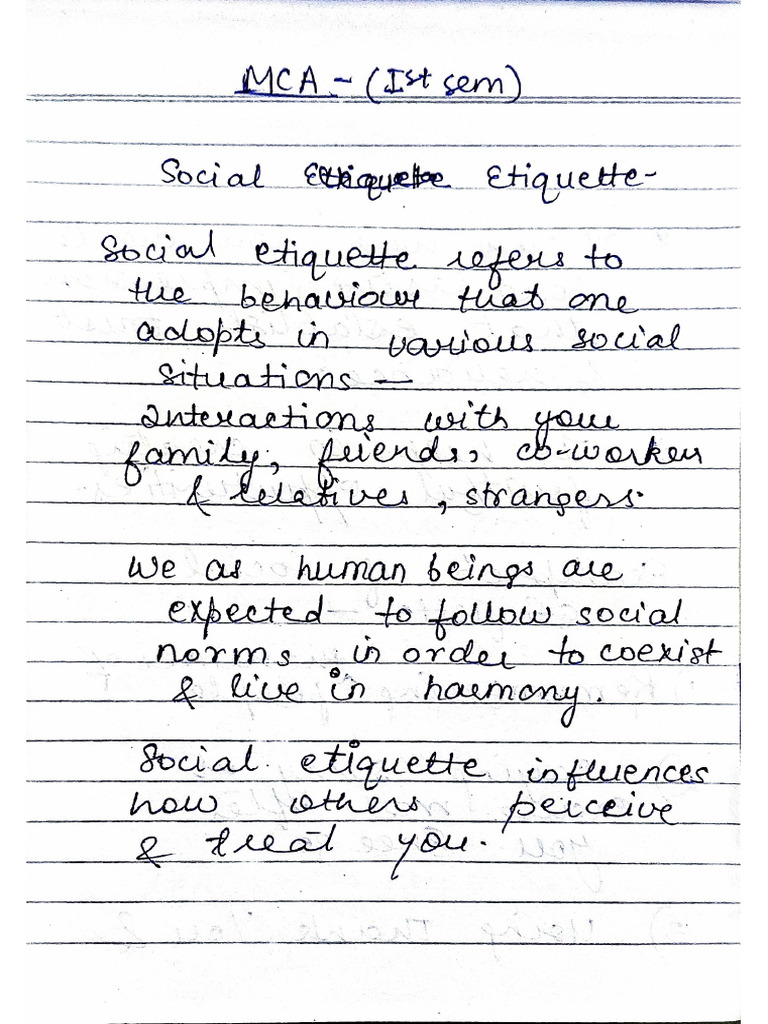 MCA - (Ist sem)
Social Etiquette Etiquette-
Social etiquette refers to
the behaviour that one
adopts in various social
situations —
Interactions with your
family, friends, co-worker
& relatives, strangers.
We as human beings are
expected to follow social
norms in order to coexist
& live in harmony.
Social etiquette influences
how others perceive
& treat you.